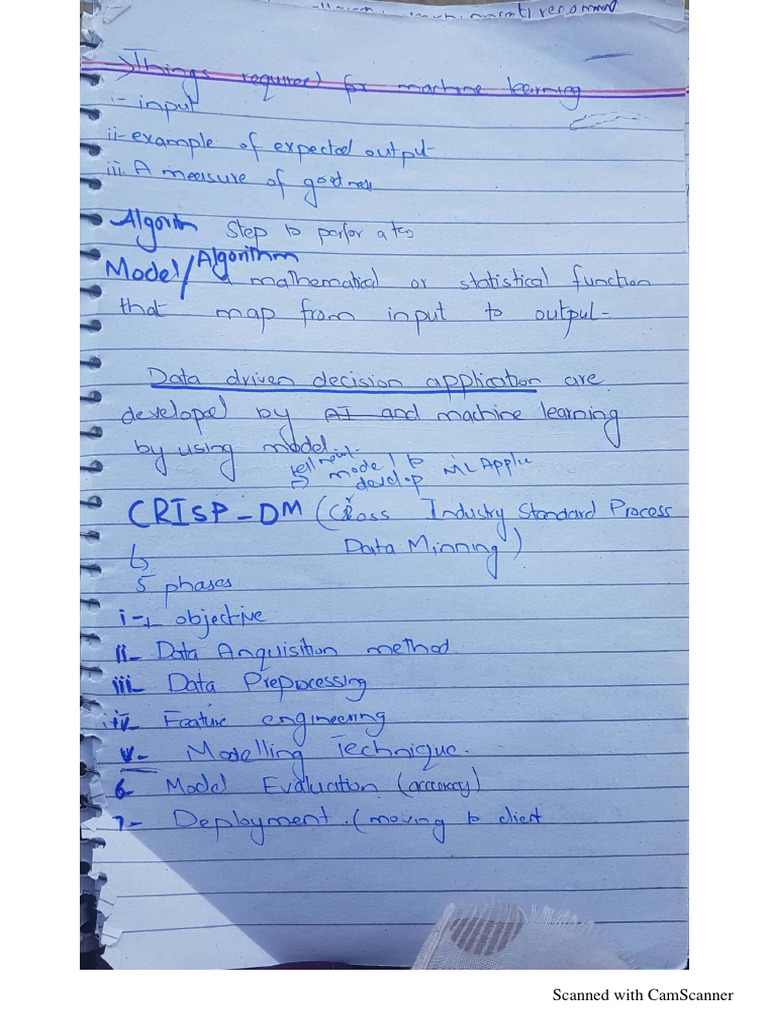 recommend
Things required for machine learning
i- input
ii- example of expected output
iii. A measure of goodness
Algorithm Step to perfor a
Model/Algorithm a mathematical or statistical function
that map from input to output-
Data driven decision application are
developed by AI and machine learning
by using model.
model to
develop ML Applic
CRISP-DM (Cross Industry Standard Process
Data Minning)
5 phases
i- objective
ii- Data Anquisition method
iii- Data Preprocessing
iv- Feature engineering
v- Modelling Technique.
6- Model Evaluation (accuracy)
7- Deployment. (moving to client
Scanned with CamScanner